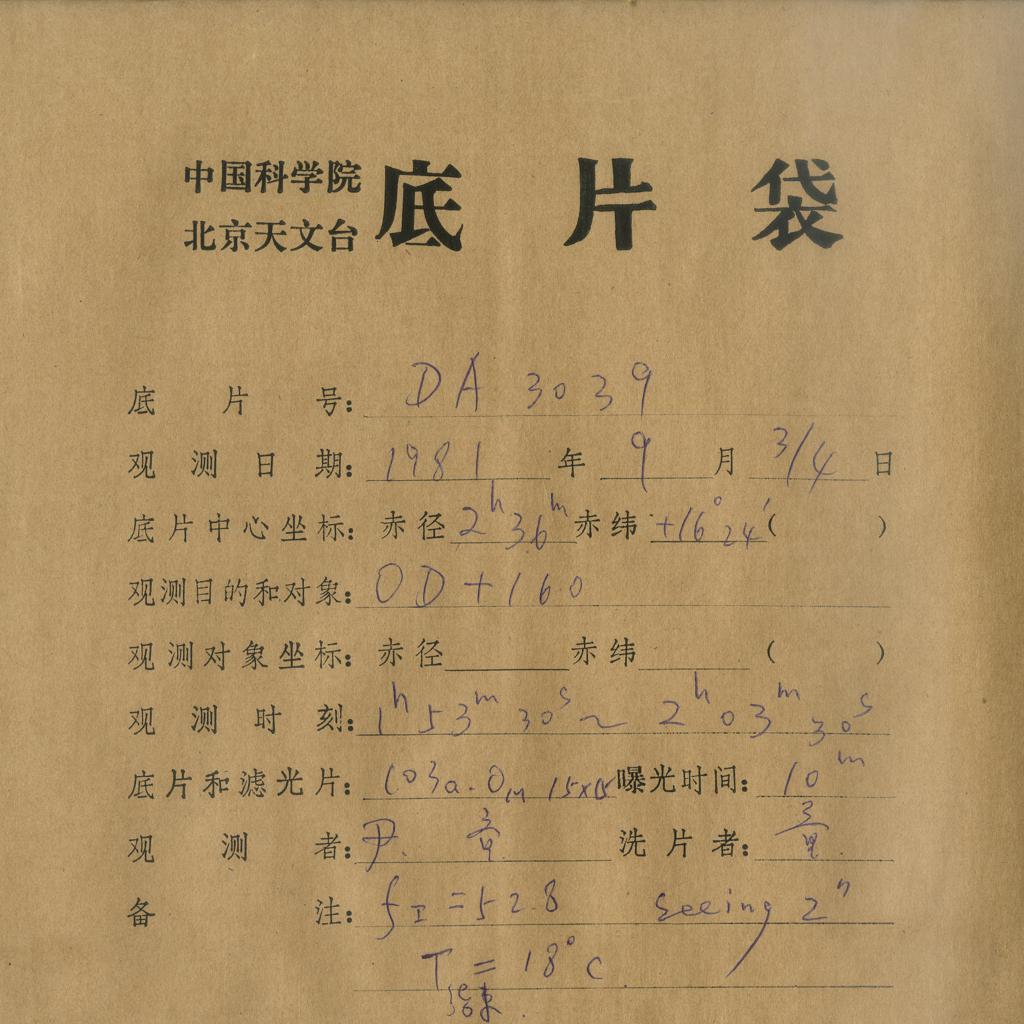 中国科学院
北京天文台 底片袋
底片号: DA 3039
观测日期: 1981 年 9 月 3/4 日
底片中心坐标: 赤径 2h 36m 赤纬 +16° 24′ ( )
观测目的和对象: OD+160
观测对象坐标: 赤径 赤纬 ( )
观测时刻: 1h 53m 30s ~ 2h 03m 30s
底片和滤光片: 103a.O 15x15 曝光时间: 10m
观测者: 尹. 洗片者:
备注: fI = 528 seeing 2"
T结束 = 18°C